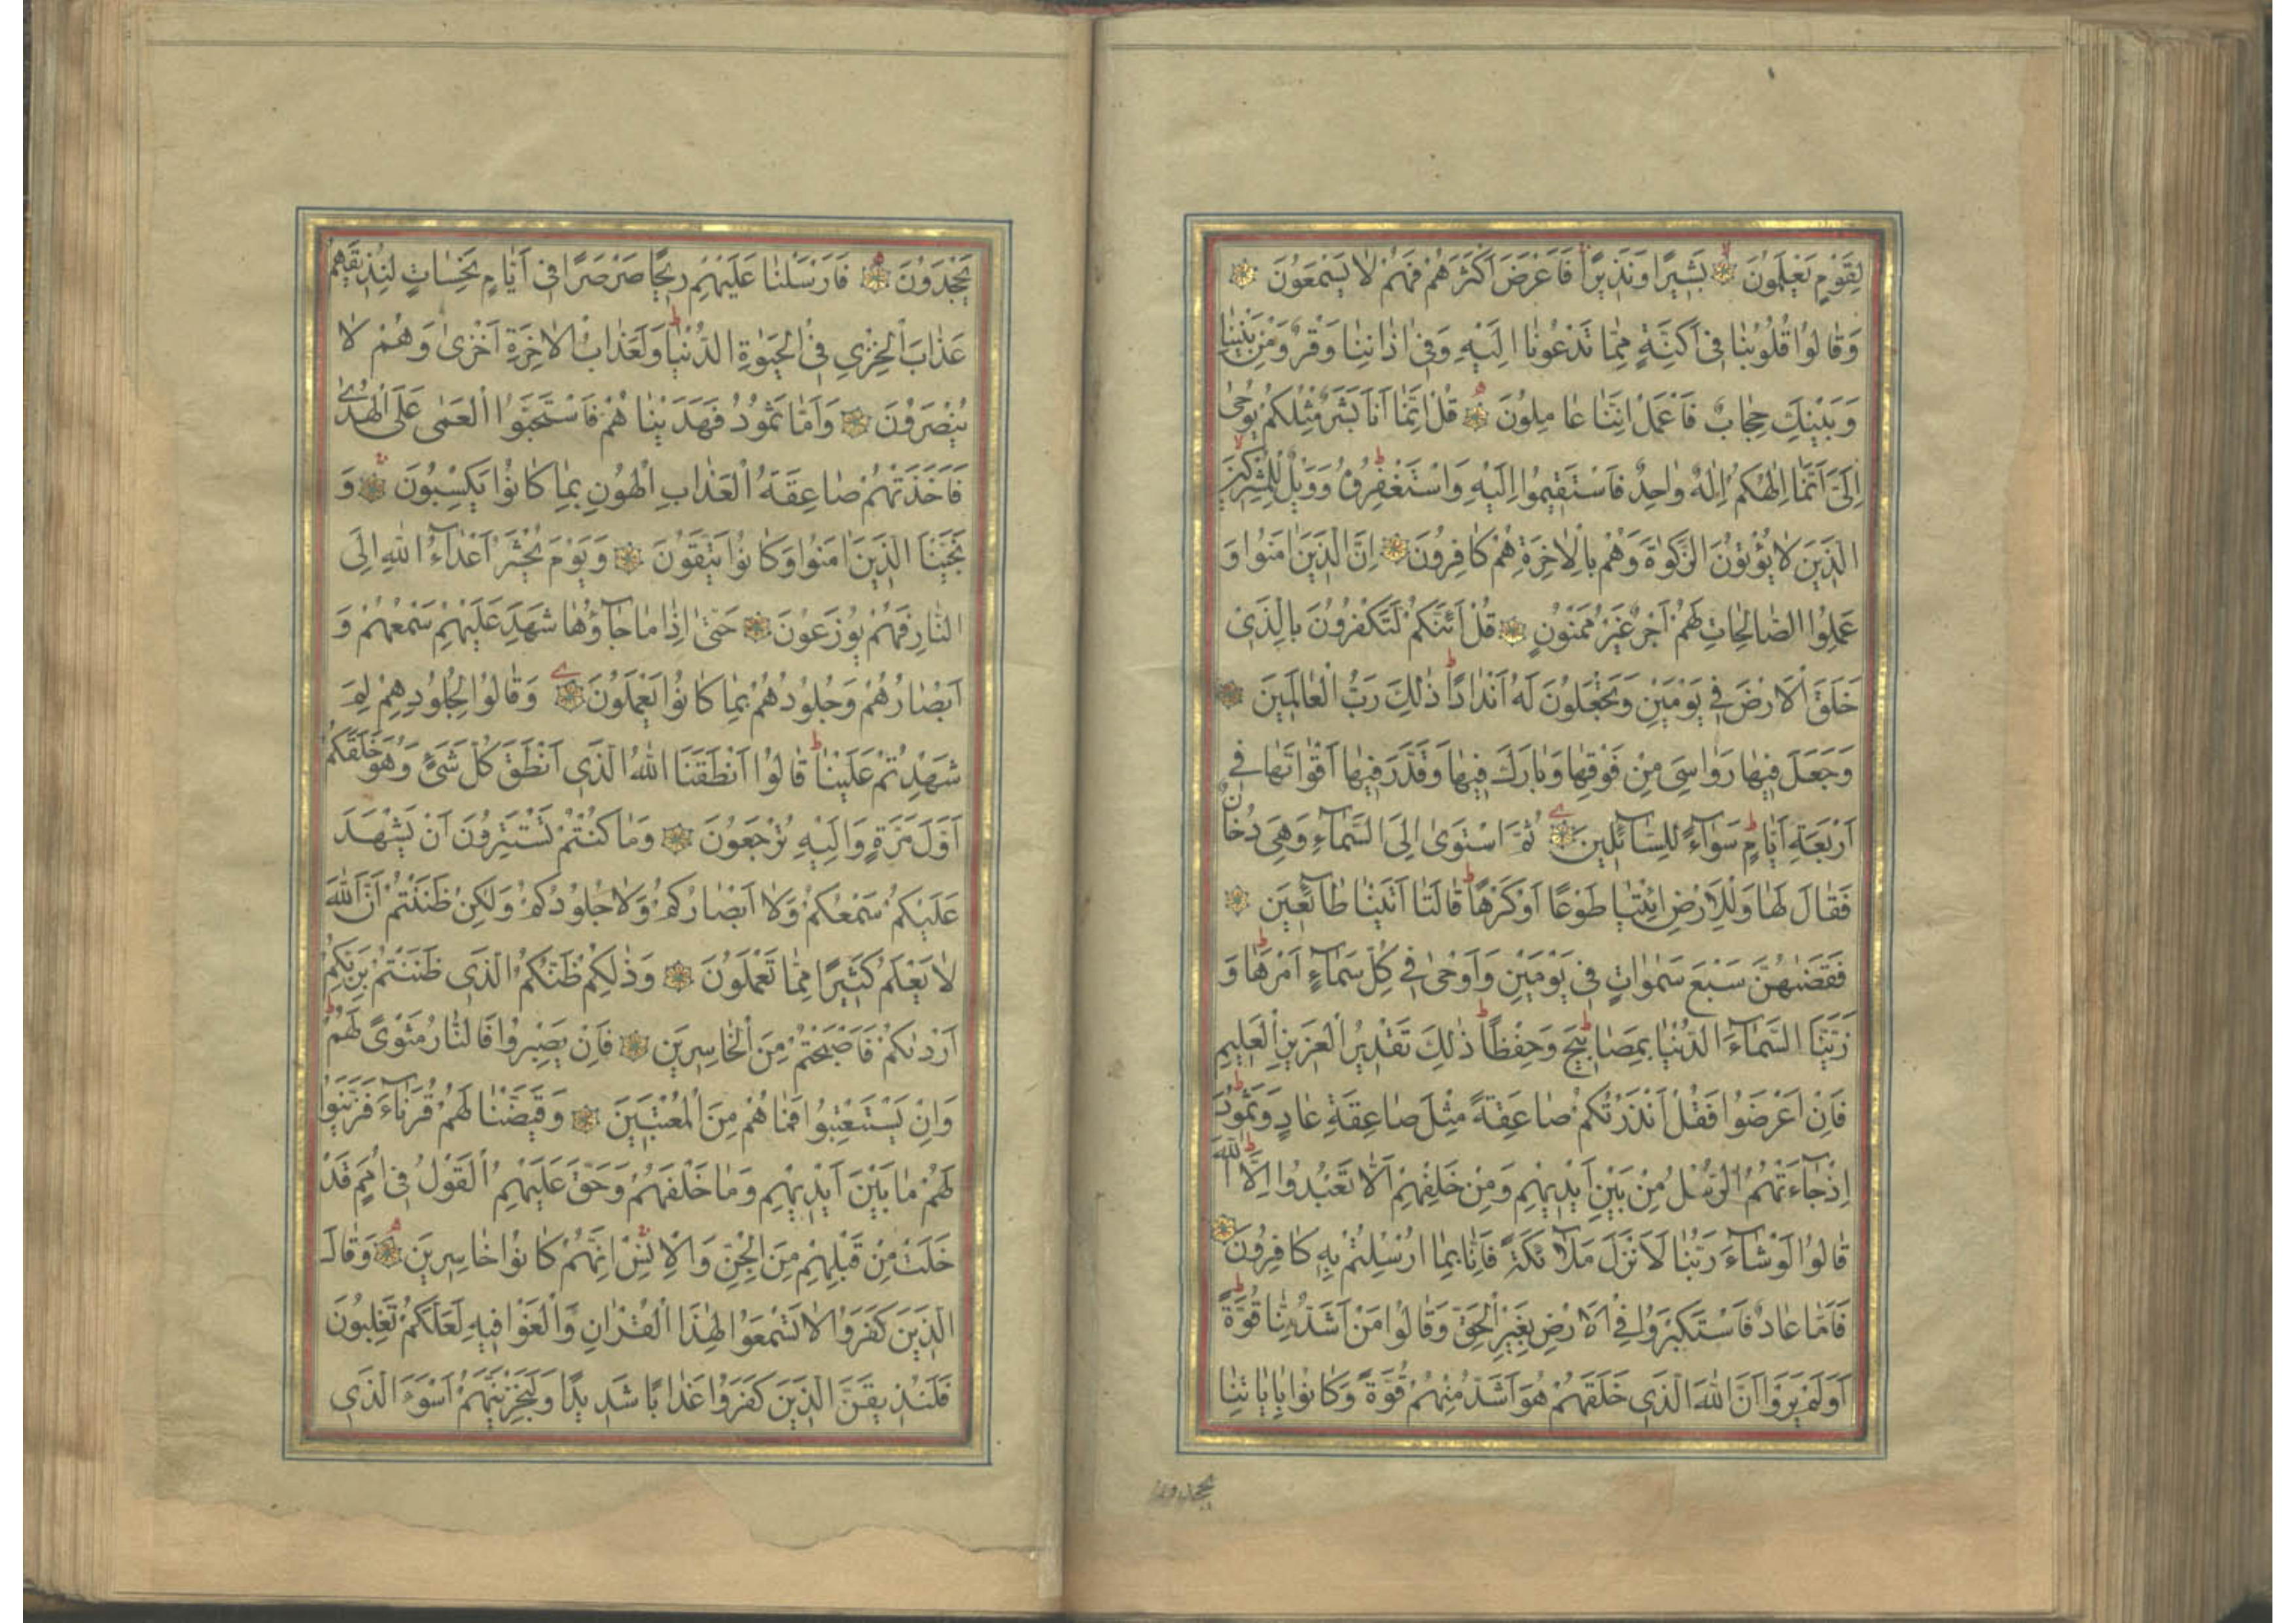 لِقَوْمٍ يَعْلَمُونَ بَشِيرًا وَنَذِيرًا فَاَعْرَضَ اَكْثَرُهُمْ فَهُمْ لَا يَسْمَعُونَ
وَقَالُوا قُلُوبُنَا فِى اَكِنَّةٍ مِمَّا تَدْعُونَا اِلَيْهِ وَفِى اٰذَانِنَا وَقْرٌ وَمِنْ بَيْنِنَا
وَبَيْنِكَ حِجَابٌ فَاعْمَلْ اِنَّنَا عَامِلُونَ قُلْ اِنَّمَا اَنَا بَشَرٌ مِثْلُكُمْ يُوحٰى
اِلَىَّ اَنَّمَا اِلٰهُكُمْ اِلٰهٌ وَاحِدٌ فَاسْتَقِيمُوا اِلَيْهِ وَاسْتَغْفِرُوهُ وَوَيْلٌ لِلْمُشْرِكِينَ
الَّذِينَ لَا يُؤْتُونَ الزَّكٰوةَ وَهُمْ بِالْاٰخِرَةِ هُمْ كَافِرُونَ اِنَّ الَّذِينَ اٰمَنُوا وَ
عَمِلُوا الصَّالِحَاتِ لَهُمْ اَجْرٌ غَيْرُ مَمْنُونٍ قُلْ اَئِنَّكُمْ لَتَكْفُرُونَ بِالَّذِى
خَلَقَ الْاَرْضَ فِى يَوْمَيْنِ وَتَجْعَلُونَ لَهُ اَنْدَادًا ذٰلِكَ رَبُّ الْعَالَمِينَ
وَجَعَلَ فِيهَا رَوَاسِىَ مِنْ فَوْقِهَا وَبَارَكَ فِيهَا وَقَدَّرَ فِيهَا اَقْوَاتَهَا فِى
اَرْبَعَةِ اَيَّامٍ سَوَآءً لِلسَّآئِلِينَ ثُمَّ اسْتَوٰى اِلَى السَّمَآءِ وَهِىَ دُخَانٌ
فَقَالَ لَهَا وَلِلْاَرْضِ ائْتِيَا طَوْعًا اَوْ كَرْهًا قَالَتَا اَتَيْنَا طَآئِعِينَ
فَقَضٰيهُنَّ سَبْعَ سَمٰوَاتٍ فِى يَوْمَيْنِ وَاَوْحٰى فِى كُلِّ سَمَآءٍ اَمْرَهَا وَ
زَيَّنَّا السَّمَآءَ الدُّنْيَا بِمَصَابِيحَ وَحِفْظًا ذٰلِكَ تَقْدِيرُ الْعَزِيزِ الْعَلِيمِ
فَاِنْ اَعْرَضُوا فَقُلْ اَنْذَرْتُكُمْ صَاعِقَةً مِثْلَ صَاعِقَةِ عَادٍ وَثَمُودَ
اِذْ جَآءَتْهُمُ الرُّسُلُ مِنْ بَيْنِ اَيْدِيهِمْ وَمِنْ خَلْفِهِمْ اَلَّا تَعْبُدُوا اِلَّا اللّٰهَ
قَالُوا لَوْ شَآءَ رَبُّنَا لَاَنْزَلَ مَلَآئِكَةً فَاِنَّا بِمَا اُرْسِلْتُمْ بِهِ كَافِرُونَ
فَاَمَّا عَادٌ فَاسْتَكْبَرُوا فِى الْاَرْضِ بِغَيْرِ الْحَقِّ وَقَالُوا مَنْ اَشَدُّ مِنَّا قُوَّةً
اَوَلَمْ يَرَوْا اَنَّ اللّٰهَ الَّذِى خَلَقَهُمْ هُوَ اَشَدُّ مِنْهُمْ قُوَّةً وَكَانُوا بِاٰيَاتِنَا
يجحدون
يَجْحَدُونَ فَاَرْسَلْنَا عَلَيْهِمْ رِيحًا صَرْصَرًا فِى اَيَّامٍ نَحِسَاتٍ لِنُذِيقَهُمْ
عَذَابَ الْخِزْىِ فِى الْحَيٰوةِ الدُّنْيَا وَلَعَذَابُ الْاٰخِرَةِ اَخْزٰى وَهُمْ لَا
يُنْصَرُونَ وَاَمَّا ثَمُودُ فَهَدَيْنَاهُمْ فَاسْتَحَبُّوا الْعَمٰى عَلَى الْهُدٰى
فَاَخَذَتْهُمْ صَاعِقَةُ الْعَذَابِ الْهُونِ بِمَا كَانُوا يَكْسِبُونَ وَ
نَجَّيْنَا الَّذِينَ اٰمَنُوا وَكَانُوا يَتَّقُونَ وَيَوْمَ يُحْشَرُ اَعْدَآءُ اللّٰهِ اِلَى
النَّارِ فَهُمْ يُوزَعُونَ حَتّٰى اِذَا مَا جَآؤُهَا شَهِدَ عَلَيْهِمْ سَمْعُهُمْ وَ
اَبْصَارُهُمْ وَجُلُودُهُمْ بِمَا كَانُوا يَعْمَلُونَ وَقَالُوا لِجُلُودِهِمْ لِمَ
شَهِدْتُمْ عَلَيْنَا قَالُوا اَنْطَقَنَا اللّٰهُ الَّذِى اَنْطَقَ كُلَّ شَىْءٍ وَهُوَ خَلَقَكُمْ
اَوَّلَ مَرَّةٍ وَاِلَيْهِ تُرْجَعُونَ وَمَا كُنْتُمْ تَسْتَتِرُونَ اَنْ يَشْهَدَ
عَلَيْكُمْ سَمْعُكُمْ وَلَا اَبْصَارُكُمْ وَلَا جُلُودُكُمْ وَلٰكِنْ ظَنَنْتُمْ اَنَّ اللّٰهَ
لَا يَعْلَمُ كَثِيرًا مِمَّا تَعْمَلُونَ وَذٰلِكُمْ ظَنُّكُمُ الَّذِى ظَنَنْتُمْ بِرَبِّكُمْ
اَرْدٰيكُمْ فَاَصْبَحْتُمْ مِنَ الْخَاسِرِينَ فَاِنْ يَصْبِرُوا فَالنَّارُ مَثْوًى لَهُمْ
وَاِنْ يَسْتَعْتِبُوا فَمَا هُمْ مِنَ الْمُعْتَبِينَ وَقَيَّضْنَا لَهُمْ قُرَنَآءَ فَزَيَّنُوا
لَهُمْ مَا بَيْنَ اَيْدِيهِمْ وَمَا خَلْفَهُمْ وَحَقَّ عَلَيْهِمُ الْقَوْلُ فِى اُمَمٍ قَدْ
خَلَتْ مِنْ قَبْلِهِمْ مِنَ الْجِنِّ وَالْاِنْسِ اِنَّهُمْ كَانُوا خَاسِرِينَ وَقَالَ
الَّذِينَ كَفَرُوا لَا تَسْمَعُوا لِهٰذَا الْقُرْاٰنِ وَالْغَوْا فِيهِ لَعَلَّكُمْ تَغْلِبُونَ
فَلَنُذِيقَنَّ الَّذِينَ كَفَرُوا عَذَابًا شَدِيدًا وَلَنَجْزِيَنَّهُمْ اَسْوَءَ الَّذِى